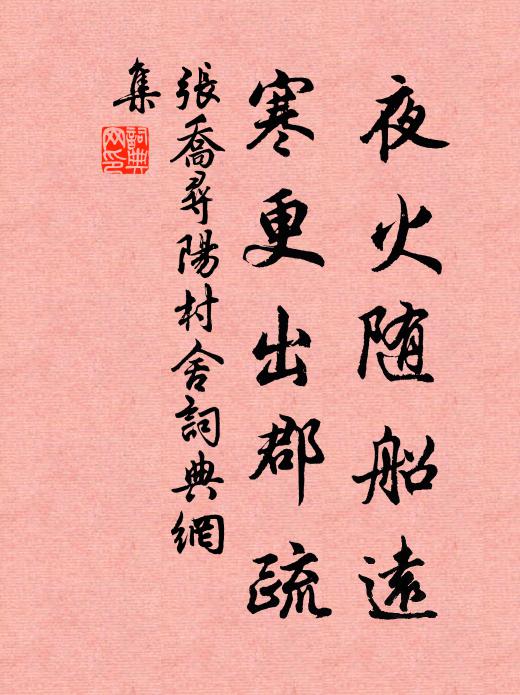 夜火随船遠
寒更出郡疏
張喬尋陽村舍詞典網
集
詞典
网印